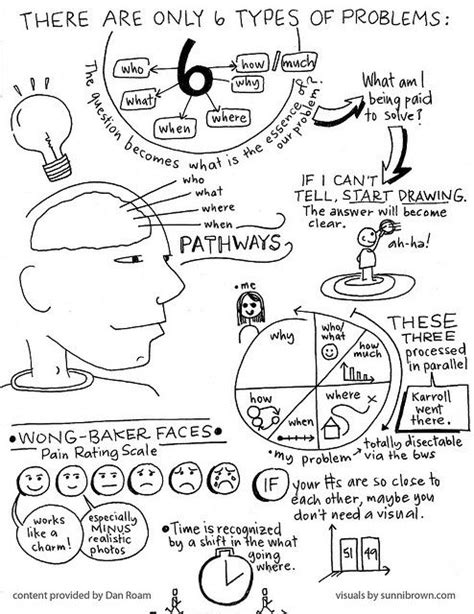 THERE ARE ONLY 6 TYPES OF PROBLEMS:
6
who
how / much
what
why
when
where
The question becomes what is the essence of our problem?
What am I
being paid
to solve?
IF I CAN'T
TELL, START DRAWING.
The answer will become
clear.
ah-ha!
who
what
where
when
PATHWAYS
• me
why
who/
what
how
much
how
when
where
THESE
THREE
processed
in parallel
Karroll
went
there.
• my problem
totally disectable
via the 6ws
• WONG-BAKER FACES •
Pain Rating Scale
works
like a
charm!
especially
MINUS
realistic
photos
IF
your #s are so close to
each other, maybe you
don't need a visual.
51 49
• Time is recognized
by a shift in the what
going
where.
content provided by Dan Roam
visuals by sunnibrown.com